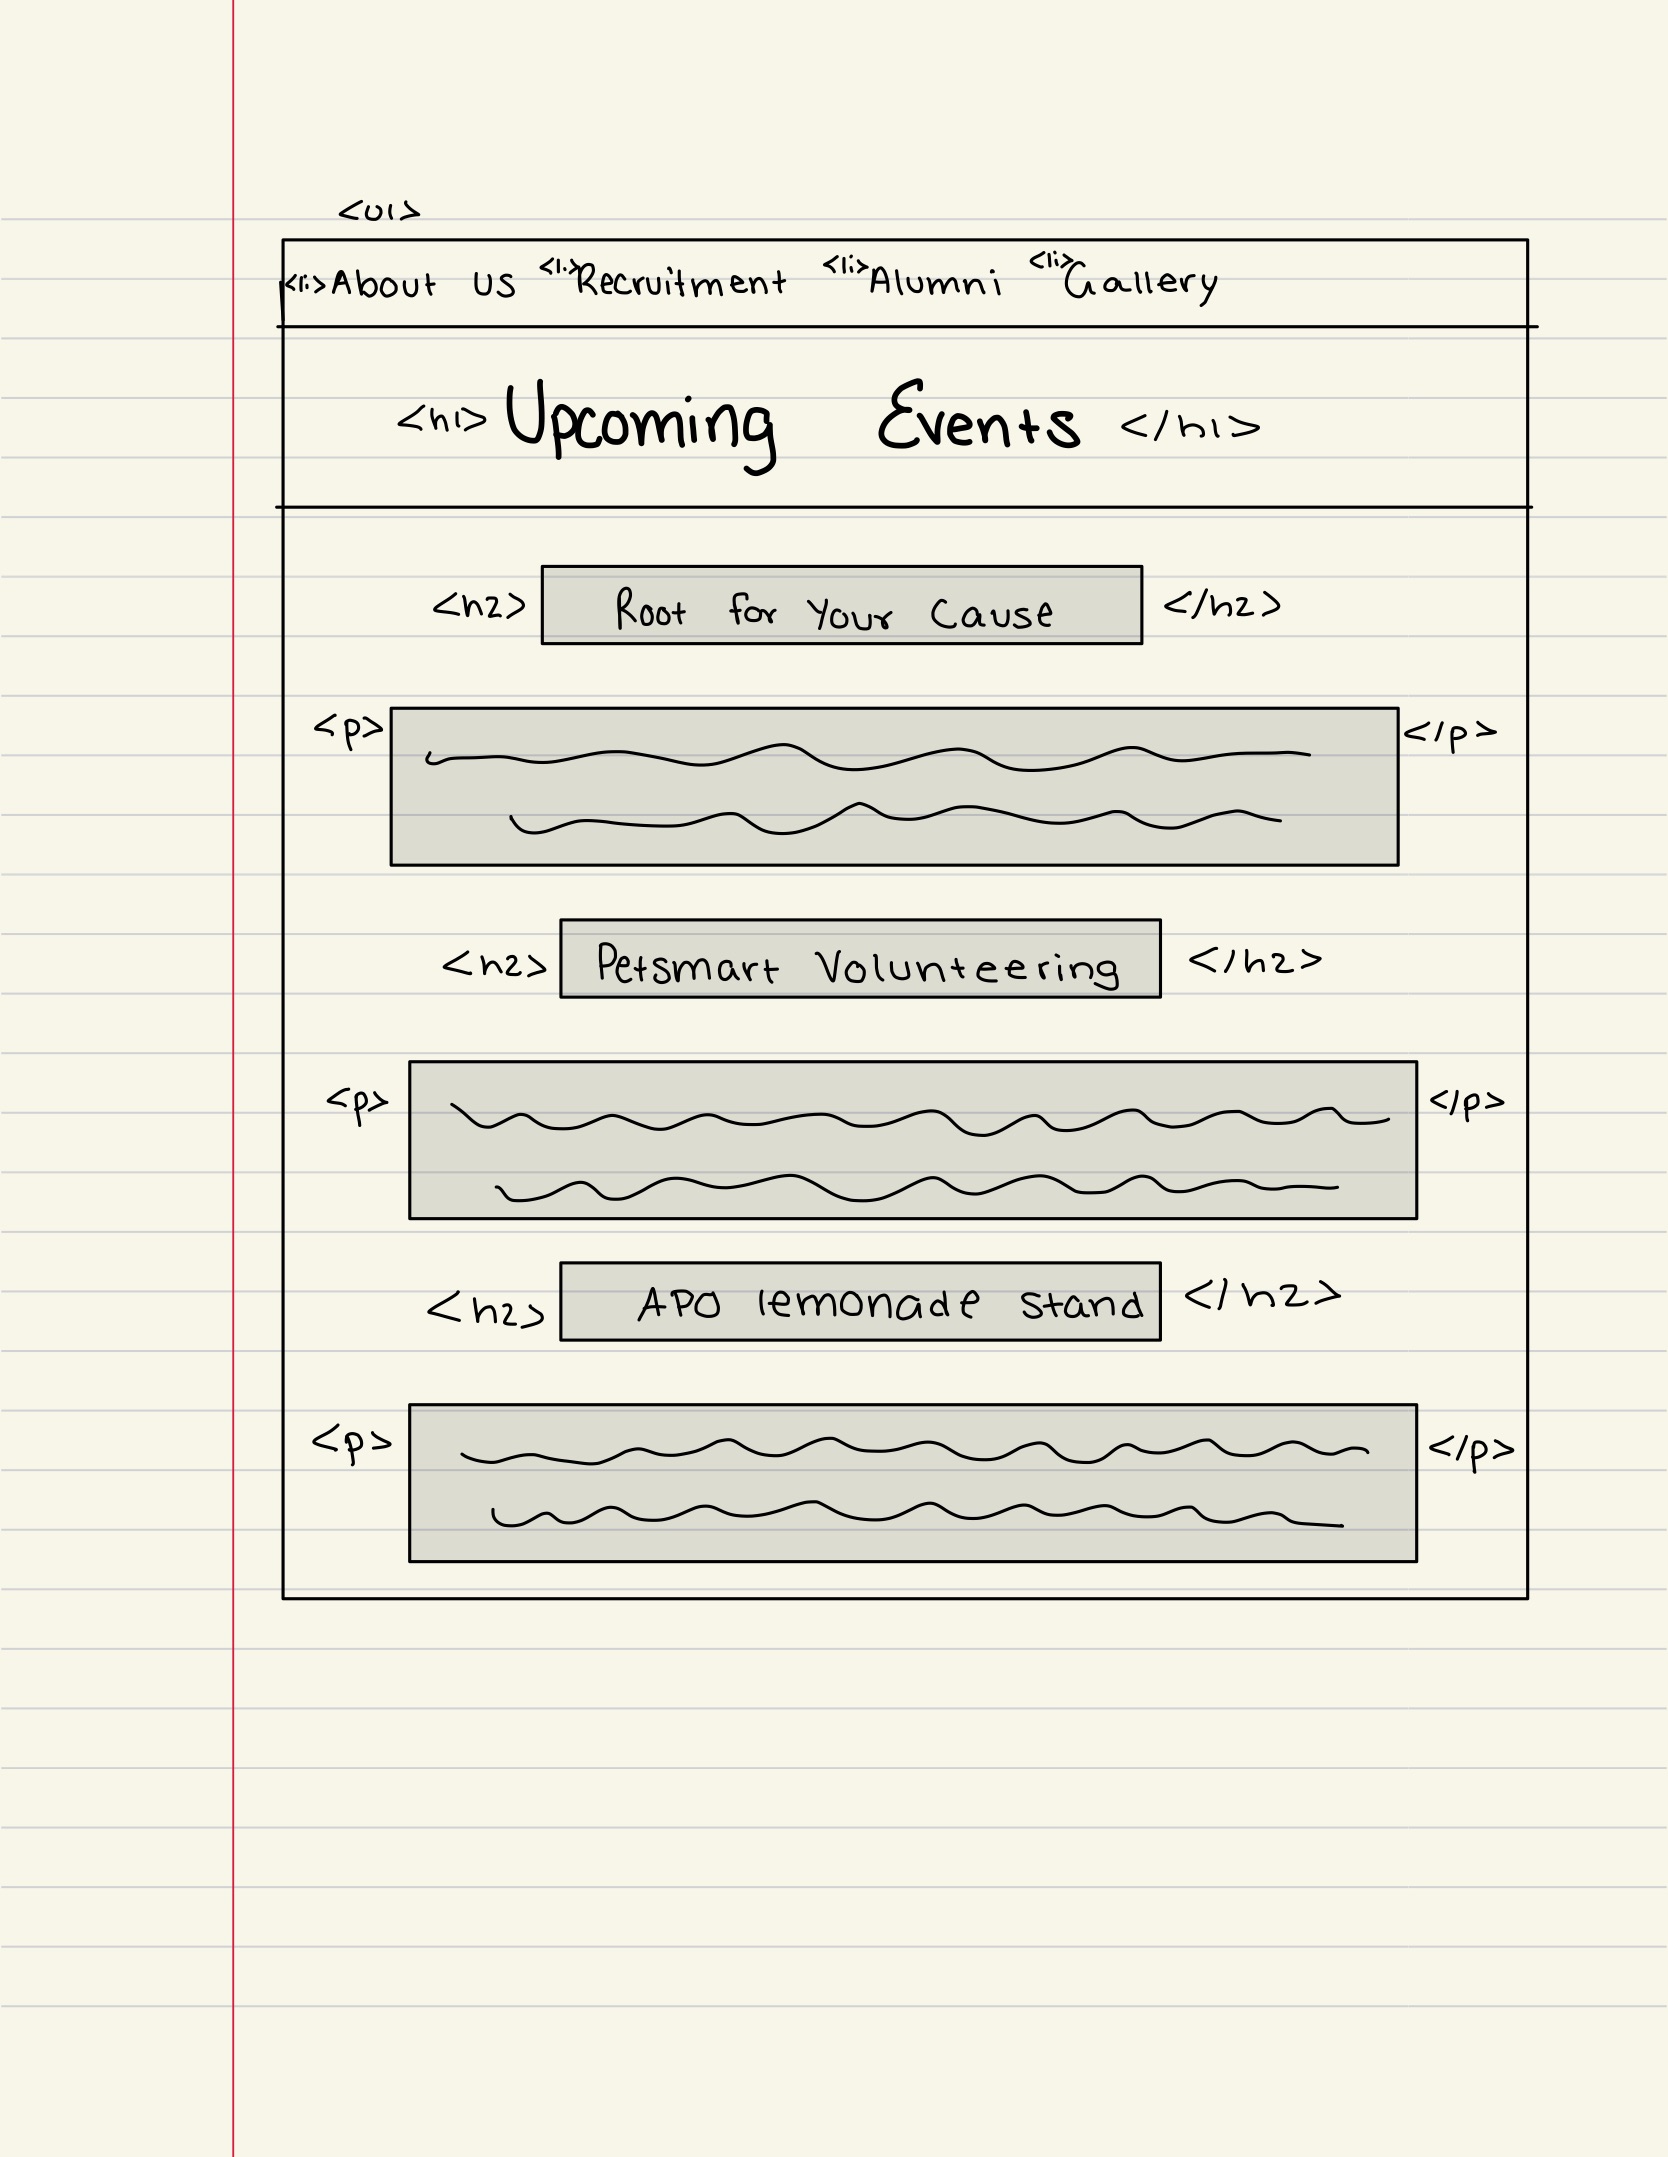 <ul>
<li>About Us <li>Recruitment <li>Alumni <li>Gallery
<h1> Upcoming Events </h1>
<h2> Root for Your Cause </h2>
<p> </p>
<h2> Petsmart Volunteering </h2>
<p> </p>
<h2> APO lemonade stand </h2>
<p> </p>